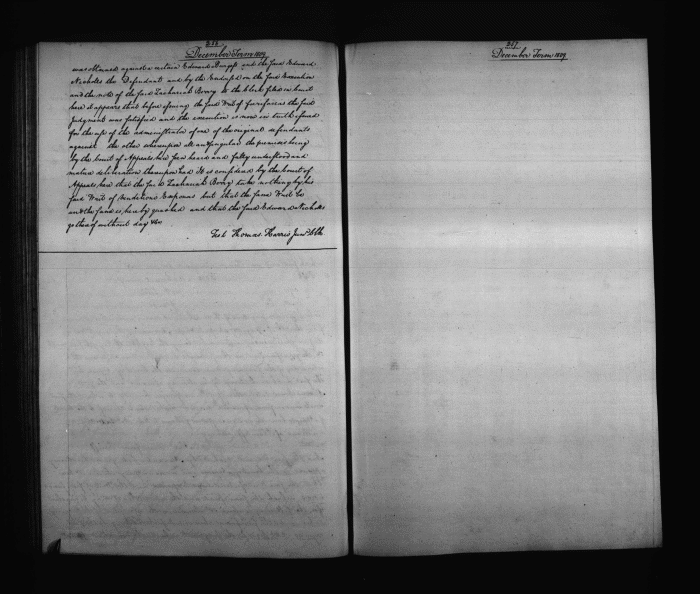 December Term 1809
was obtained against a certain Edward and the said Edward
Nicholls the Defendants and by the Endorsmt on the said Execution
and the note of the said Zachariah Berry to the clerk filed in Court
here it appears that before issuing the said Writ of fierifacias the said
Judgment was satisfied and the execution is now in truth issued
for the use of the administrator of one of the original defendants
against the other whereupon all and singular the premises being
by the Court of Appeals here seen heard and fully understood and
mature deliberation thereupon had It is considered by the Court of
Appeals here that the said Zachariah Berry take nothing by his
said Writ of Venditioni Exponas but that the same Writ be
and the same is hereby quashed and that the said Edward Nicholls
go thereof without day &c
Test Thomas Harris Junr Clk
217
December Term 1809